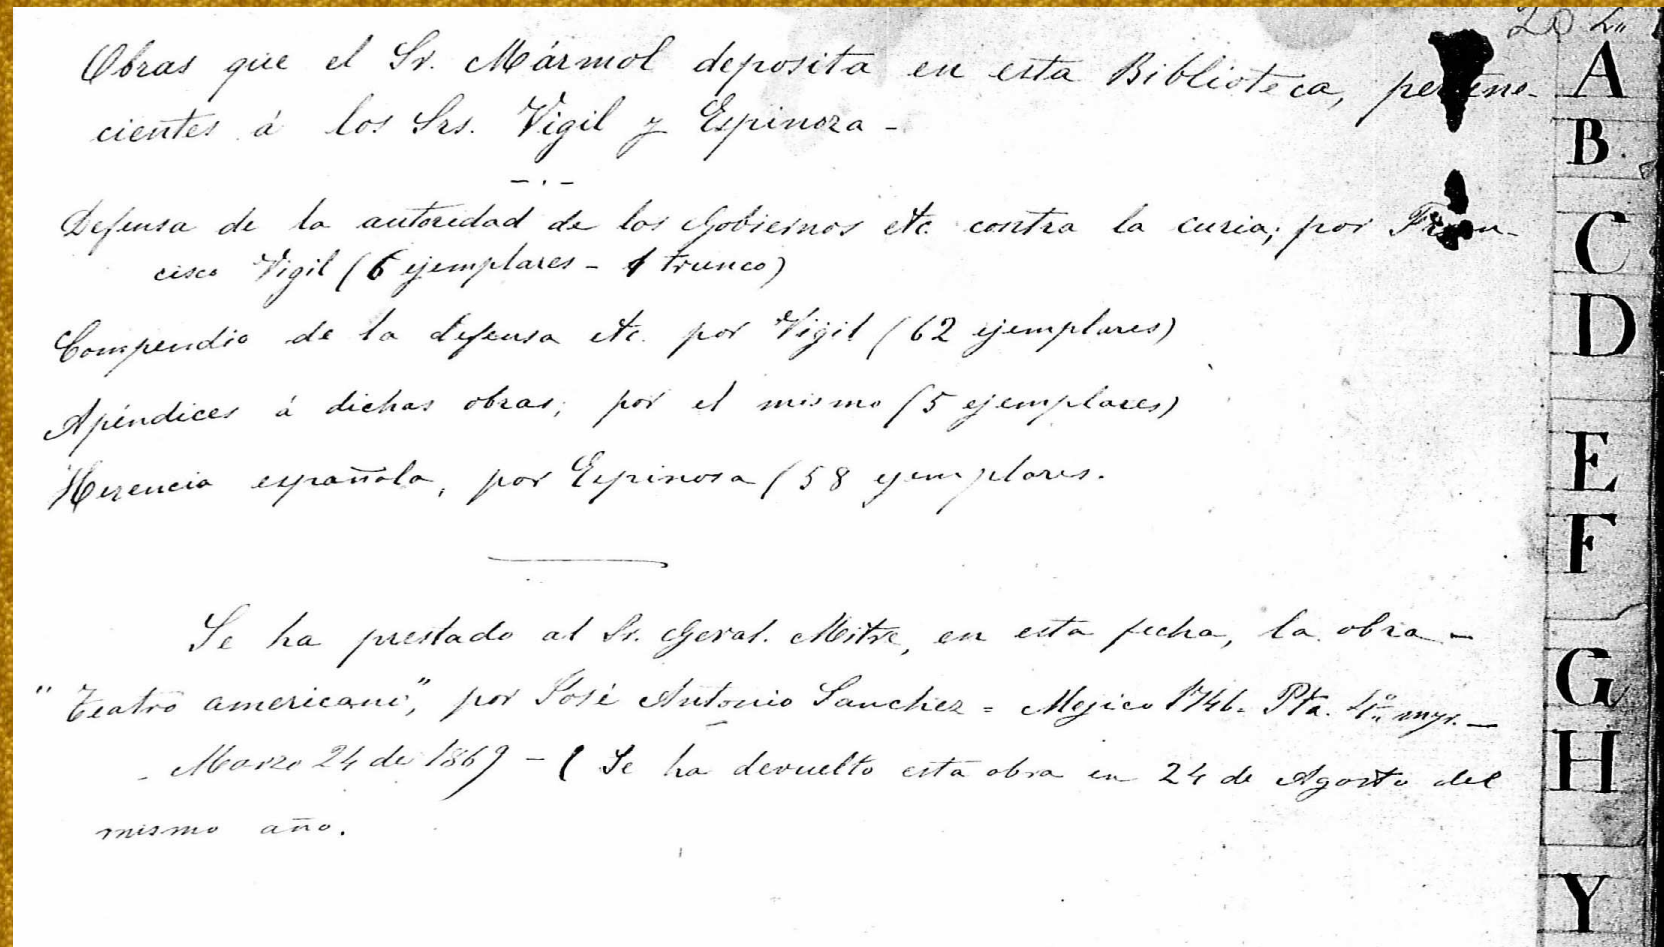 Obras que el Sr. Mármol deposita en esta Biblioteca, pertene-
cientes á los Srs. Vigil y Espinoza -
Defensa de la autoridad de los Gobiernos etc. contra la curia; por Fran-
cisco Vigil (6 ejemplares - 1 trunco)
Compendio de la defensa etc. por Vigil (62 ejemplares)
Apéndices á dichas obras; por el mismo (5 ejemplares)
Herencia española, por Espinosa (58 ejemplares.
Se ha prestado al Sr. Geral. Mitre, en esta fecha, la obra -
"Teatro americano", por José Antonio Sanchez = Mejico 1746. Pta. 4º myr. -
- Marzo 24 de 1869 - ( Se ha devuelto esta obra en 24 de Agosto del
mismo año.
A
B
C
D
E
F
G
H
Y